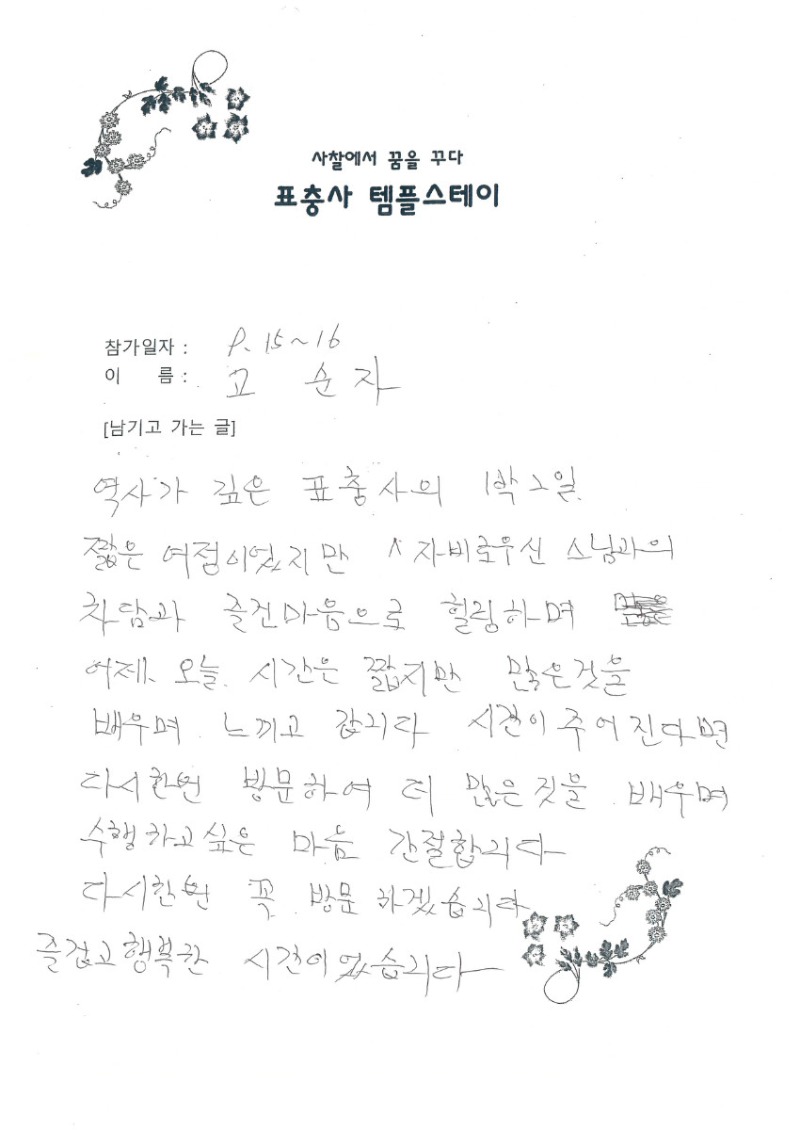 사찰에서 꿈을 꾸다
표충사 템플스테이
참가일자 : 8. 15~16
이 름 : 고 순 자
[남기고 가는 글]
역사가 깊은 표충사의 1박 2일.
짧은 여정이었지만 자비로우신 스님과의
차담과 즐건마음으로 힐링하며
어제, 오늘. 시간은 짧지만 많은것을
배우며 느끼고 갑니다 시간이 주어진다면
다시한번 방문하여 더 많은 것을 배우며
수행하고 싶은 마음 간절합니다
다시한번 꼭 방문 하겠습니다
즐겁고 행복한 시간이었습니다